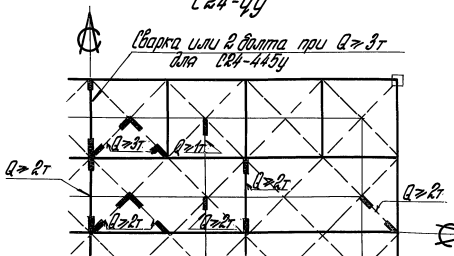 С24-4у
Сварка или 2 болта при Q≥3т
для С24-445у
Q≥3т
Q≥1т
Q≥2т
Q≥2т
Q≥2т
Q≥2т
Q≥2т